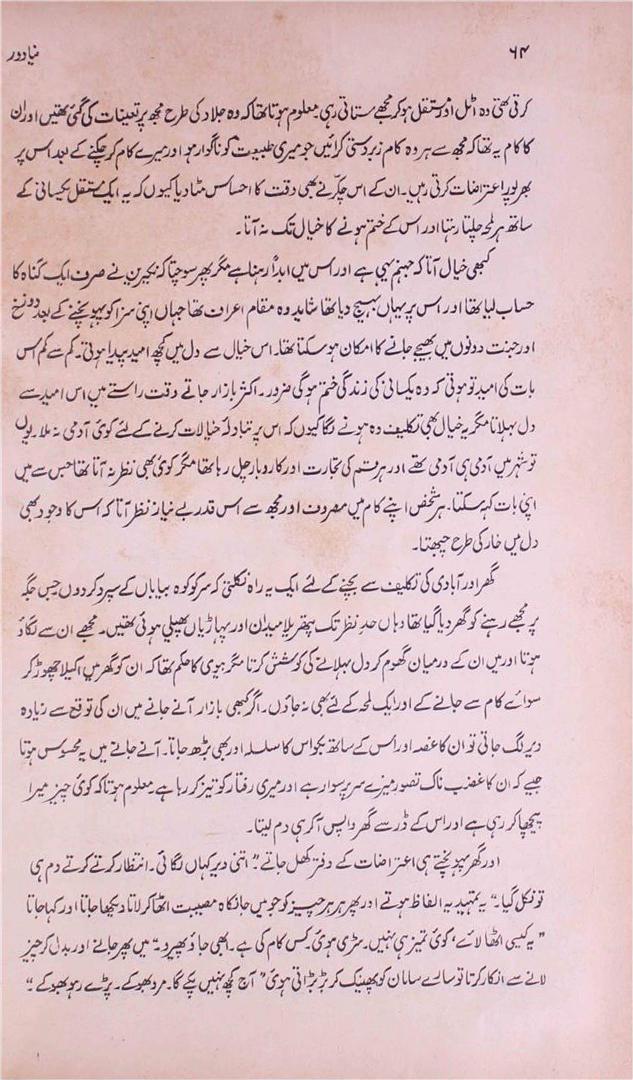 ۶۴
نیا دور
کرتی تھی وہ اٹل اور مستقل ہو کر مجھے ستاتی رہی۔ معلوم ہوتا تھا کہ وہ جلاد کی طرح مجھ پر تعینات کی گئی تھیں اور ان
کا کام یہ تھا کہ مجھ سے ہر وہ کام زبردستی کرائیں جو میری طبیعت کو ناگوار ہو اور میرے کام کر چکنے کے بعد اس پر
بھرپور اعتراضات کرتی رہیں۔ ان کے اس چکّر نے بھی وقت کا احساس مٹا دیا کیوں کہ یہ ایک مستقل یکسانی کے
ساتھ ہر لمحہ چلتا رہتا اور اس کے ختم ہونے کا خیال تک نہ آتا۔
کبھی خیال آتا کہ جہنم یہی ہے اور اس میں ابداً رہنا ہے مگر پھر سوچتا کہ نکیرین نے صرف ایک گناہ کا
حساب لیا تھا اور اس پر یہاں بھیج دیا تھا شاید وہ مقام اعراف تھا جہاں اپنی سزا کو پہونچنے کے بعد دوزخ
اور جنت دونوں میں بھیجے جانے کا امکان ہو سکتا تھا۔ اس خیال سے دل میں کچھ امید پیدا ہوتی۔ کم سے کم اس
بات کی امید تو ہوتی کہ وہ یکسانی کی زندگی ختم ہوگی ضرور۔ اکثر بازار جاتے وقت راستے میں اس امید سے
دل بہلاتا مگر یہ خیال بھی تکلیف دہ ہونے لگا کیوں کہ اس پر تبادلۂ خیالات کرنے کے لئے کوئی آدمی نہ ملا۔ یوں
تو شہر میں آدمی ہی آدمی تھے اور ہر قسم کی تجارت اور کاروبار چل رہا تھا مگر کوئی بھی نظر نہ آتا تھا جس سے میں
اپنی بات کہہ سکتا۔ ہر شخص اپنے کام میں مصروف اور مجھ سے اس قدر بے نیاز نظر آتا کہ اس کا وجود بھی
دل میں خار کی طرح چبھتا۔
گھر اور آبادی کی تکلیف سے بچنے کے لئے ایک یہ راہ نکلتی کہ سر کو کوہ بیاباں کے سپرد کر دوں جس جگہ
پر مجھے رہنے کو گھر دیا گیا تھا وہاں حدِ نظر تک پتھریلا میدان اور پہاڑیاں پھیلی ہوئی تھیں۔ مجھے ان سے لگاؤ
ہوتا اور میں ان کے درمیان گھوم کر دل بہلانے کی کوشش کرتا مگر بیوی کا حکم تھا کہ ان کو گھر میں اکیلا چھوڑ کر
سوائے کام سے جانے کے اور ایک لمحہ کے لئے بھی نہ جاؤں۔ اگر کبھی بازار آنے جانے میں ان کی توقع سے زیادہ
دیر لگ جاتی تو ان کا غصہ اور اس کے ساتھ بکواس کا سلسلہ اور بھی بڑھ جاتا۔ آنے جانے میں یہ محسوس ہوتا
جیسے کہ ان کا غضب ناک تصور میرے سر پر سوار ہے اور میری رفتار کو تیز کر رہا ہے۔ معلوم ہوتا کہ کوئی چیز میرا
پیچھا کر رہی ہے اور اس کے ڈر سے گھر واپس آ کر ہی دم لیتا۔
اور گھر پہونچتے ہی اعتراضات کے دفتر کھل جاتے۔ "اتنی دیر کہاں لگائی۔ انتظار کرتے کرتے دم ہی
تو نکل گیا۔" یہ تمہید یہ الفاظ ہوتے اور پھر ہر ہر چیز کو جو میں جانکاہ مصیبت اٹھا کر لاتا دیکھا جاتا اور کہا جاتا
"یہ کیسی اٹھا لائے، کوئی تمیز ہی نہیں۔ سڑی ہوئی۔ کس کام کی ہے۔ ابھی جاؤ پھیر دو۔" میں پھر جانے اور بدل کر چیز
لانے سے انکار کرتا تو سارے سامان کو پھینک کر بڑبڑاتی ہوئی "آج کچھ نہیں پکے گا۔ مرو بھوکے۔ پڑے رہو بھوکے۔"